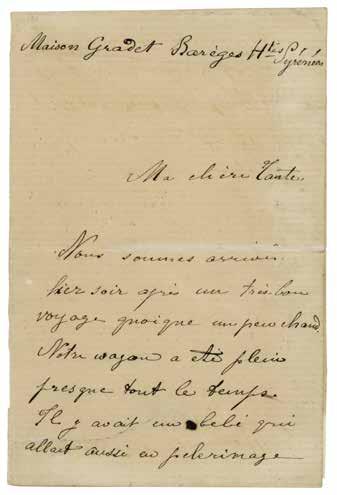 Maison Gradet Barèges Htes Pyrénées
Ma chère Tante,
Nous sommes arrivés
hier soir après un très bon
voyage quoique un peu chaud.
Notre wagon a été plein
presque tout le temps.
Il y avait un bébé qui
allait aussi en pelerinage